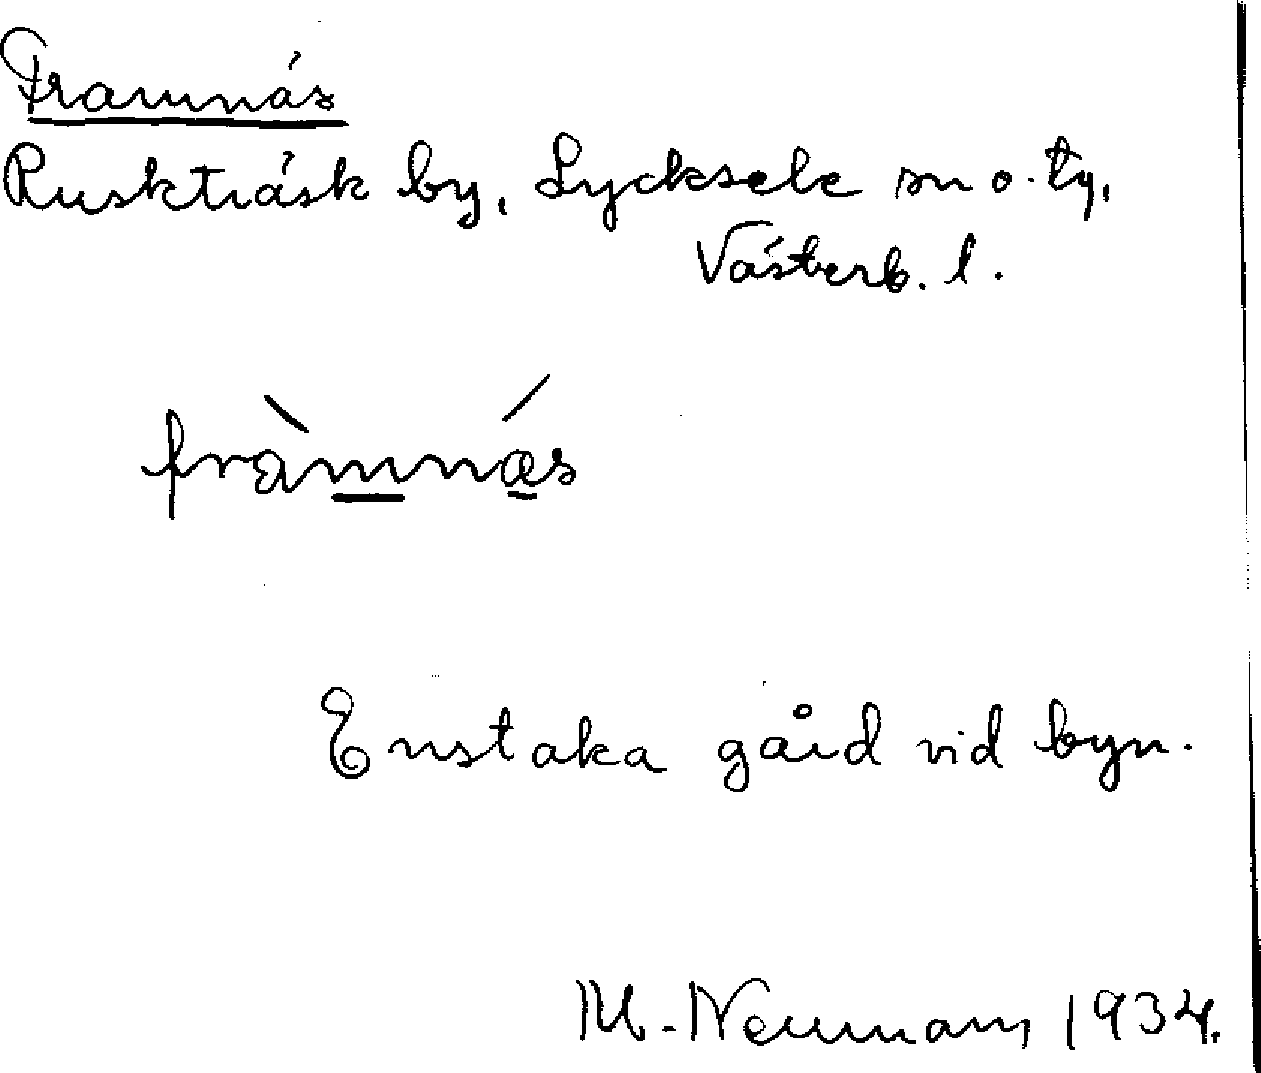 Framnäs
Ruskträsk by, Lycksele sn o. ty,
Västerb. l.
fràmnás
Enstaka gård vid byn.
M. Neumann 1934.